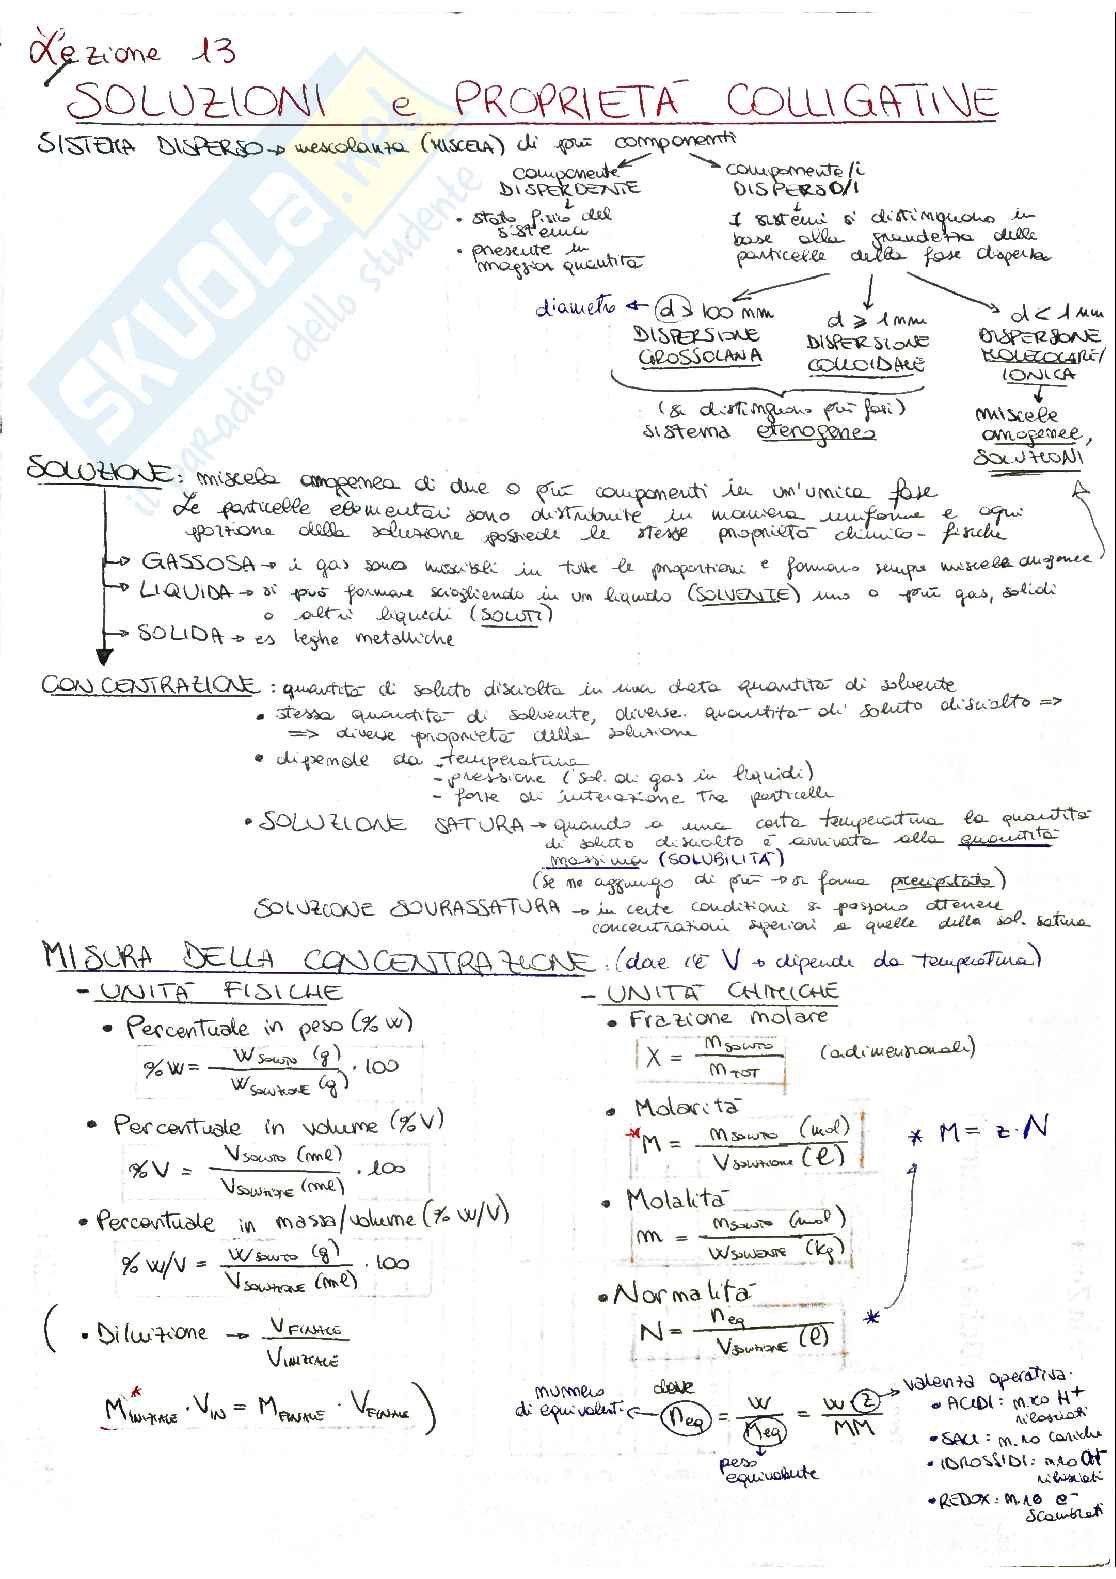 Lezione 13
SOLUZIONI e PROPRIETÀ COLLIGATIVE
SISTEMA DISPERSO → mescolanza (MISCELA) di più componenti
componente
DISPERDENTE
• stato fisico del
sistema
• presente in
maggior quantità
componente/i
DISPERSO/I
I sistemi si distinguono in
base alla grandezza delle
particelle della fase dispersa
diametro ← d > 100 nm
DISPERSIONE
GROSSOLANA
d ⩾ 1 nm
DISPERSIONE
COLLOIDALE
d < 1 nm
DISPERSIONE
MOLECOLARE/
IONICA
(si distinguono più fasi)
sistema eterogeneo
miscele
omogenee,
SOLUZIONI
SOLUZIONE: miscela omogenea di due o più componenti in un'unica fase
Le particelle elementari sono distribuite in maniera uniforme e ogni
porzione della soluzione possiede le stesse proprietà chimico-fisiche
→ GASSOSA → i gas sono miscibili in tutte le proporzioni e formano sempre miscele omogenee
→ LIQUIDA → si può formare sciogliendo in un liquido (SOLVENTE) uno o più gas, solidi
o altri liquidi (SOLUTI)
→ SOLIDA → es leghe metalliche
CONCENTRAZIONE: quantità di soluto disciolta in una data quantità di solvente
• stessa quantità di solvente, diverse quantità di soluto disciolto =>
=> diverse proprietà della soluzione
• dipende da - temperatura
- pressione (sol. di gas in liquidi)
- forze di interazione tra particelle
• SOLUZIONE SATURA → quando a una certa temperatura la quantità
di soluto disciolto è arrivata alla quantità
massima (SOLUBILITÀ)
(se ne aggiungo di più → si forma precipitato)
SOLUZIONE SOVRASSATURA → in certe condizioni si possono ottenere
concentrazioni superiori a quelle della sol. satura
MISURA DELLA CONCENTRAZIONE: (dove c'è V → dipende da temperatura)
- UNITÀ FISICHE
• Percentuale in peso (% w)
%W = W SOLUTO (g) / W SOLUZIONE (g) · 100
• Percentuale in volume (% V)
%V = V SOLUTO (ml) / V SOLUZIONE (ml) · 100
• Percentuale in massa/volume (% W/V)
% W/V = W SOLUTO (g) / V SOLUZIONE (ml) · 100
( • Diluizione → V FINALE / V INIZIALE
M* INIZIALE · V IN = M FINALE · V FINALE )
- UNITÀ CHIMICHE
• Frazione molare
X = n SOLUTO / n TOT (adimensionale)
• Molarità
* M = n SOLUTO (mol) / V SOLUZIONE (l)
* M = z · N
• Molalità
m = n SOLUTO (mol) / W SOLVENTE (kg)
• Normalità
N = neq / V SOLUZIONE (l) *
numero
di equivalenti ← dove
neq = W / Meq = W z / MM
peso
equivalente
→ valenza operativa:
• ACIDI: n.ro H+
rilasciati
• SALI: n.ro cariche
• IDROSSIDI: n.ro OH-
rilasciati
• REDOX: n.ro e-
scambiati
SKUOLA.net
il paradiso dello studente